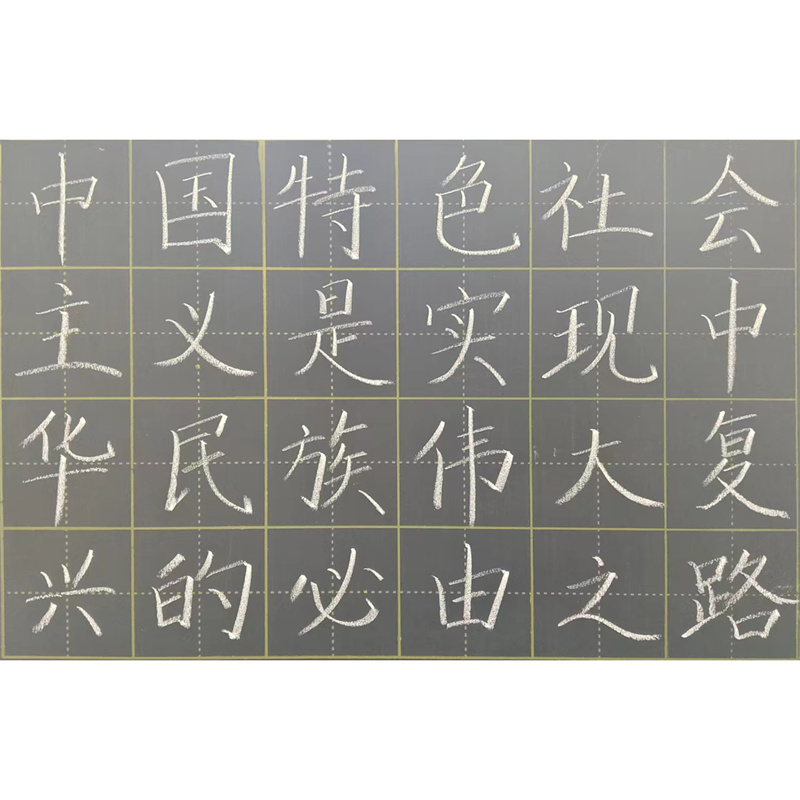 中国特色社会
主义是实现中
华民族伟大复
兴的必由之路